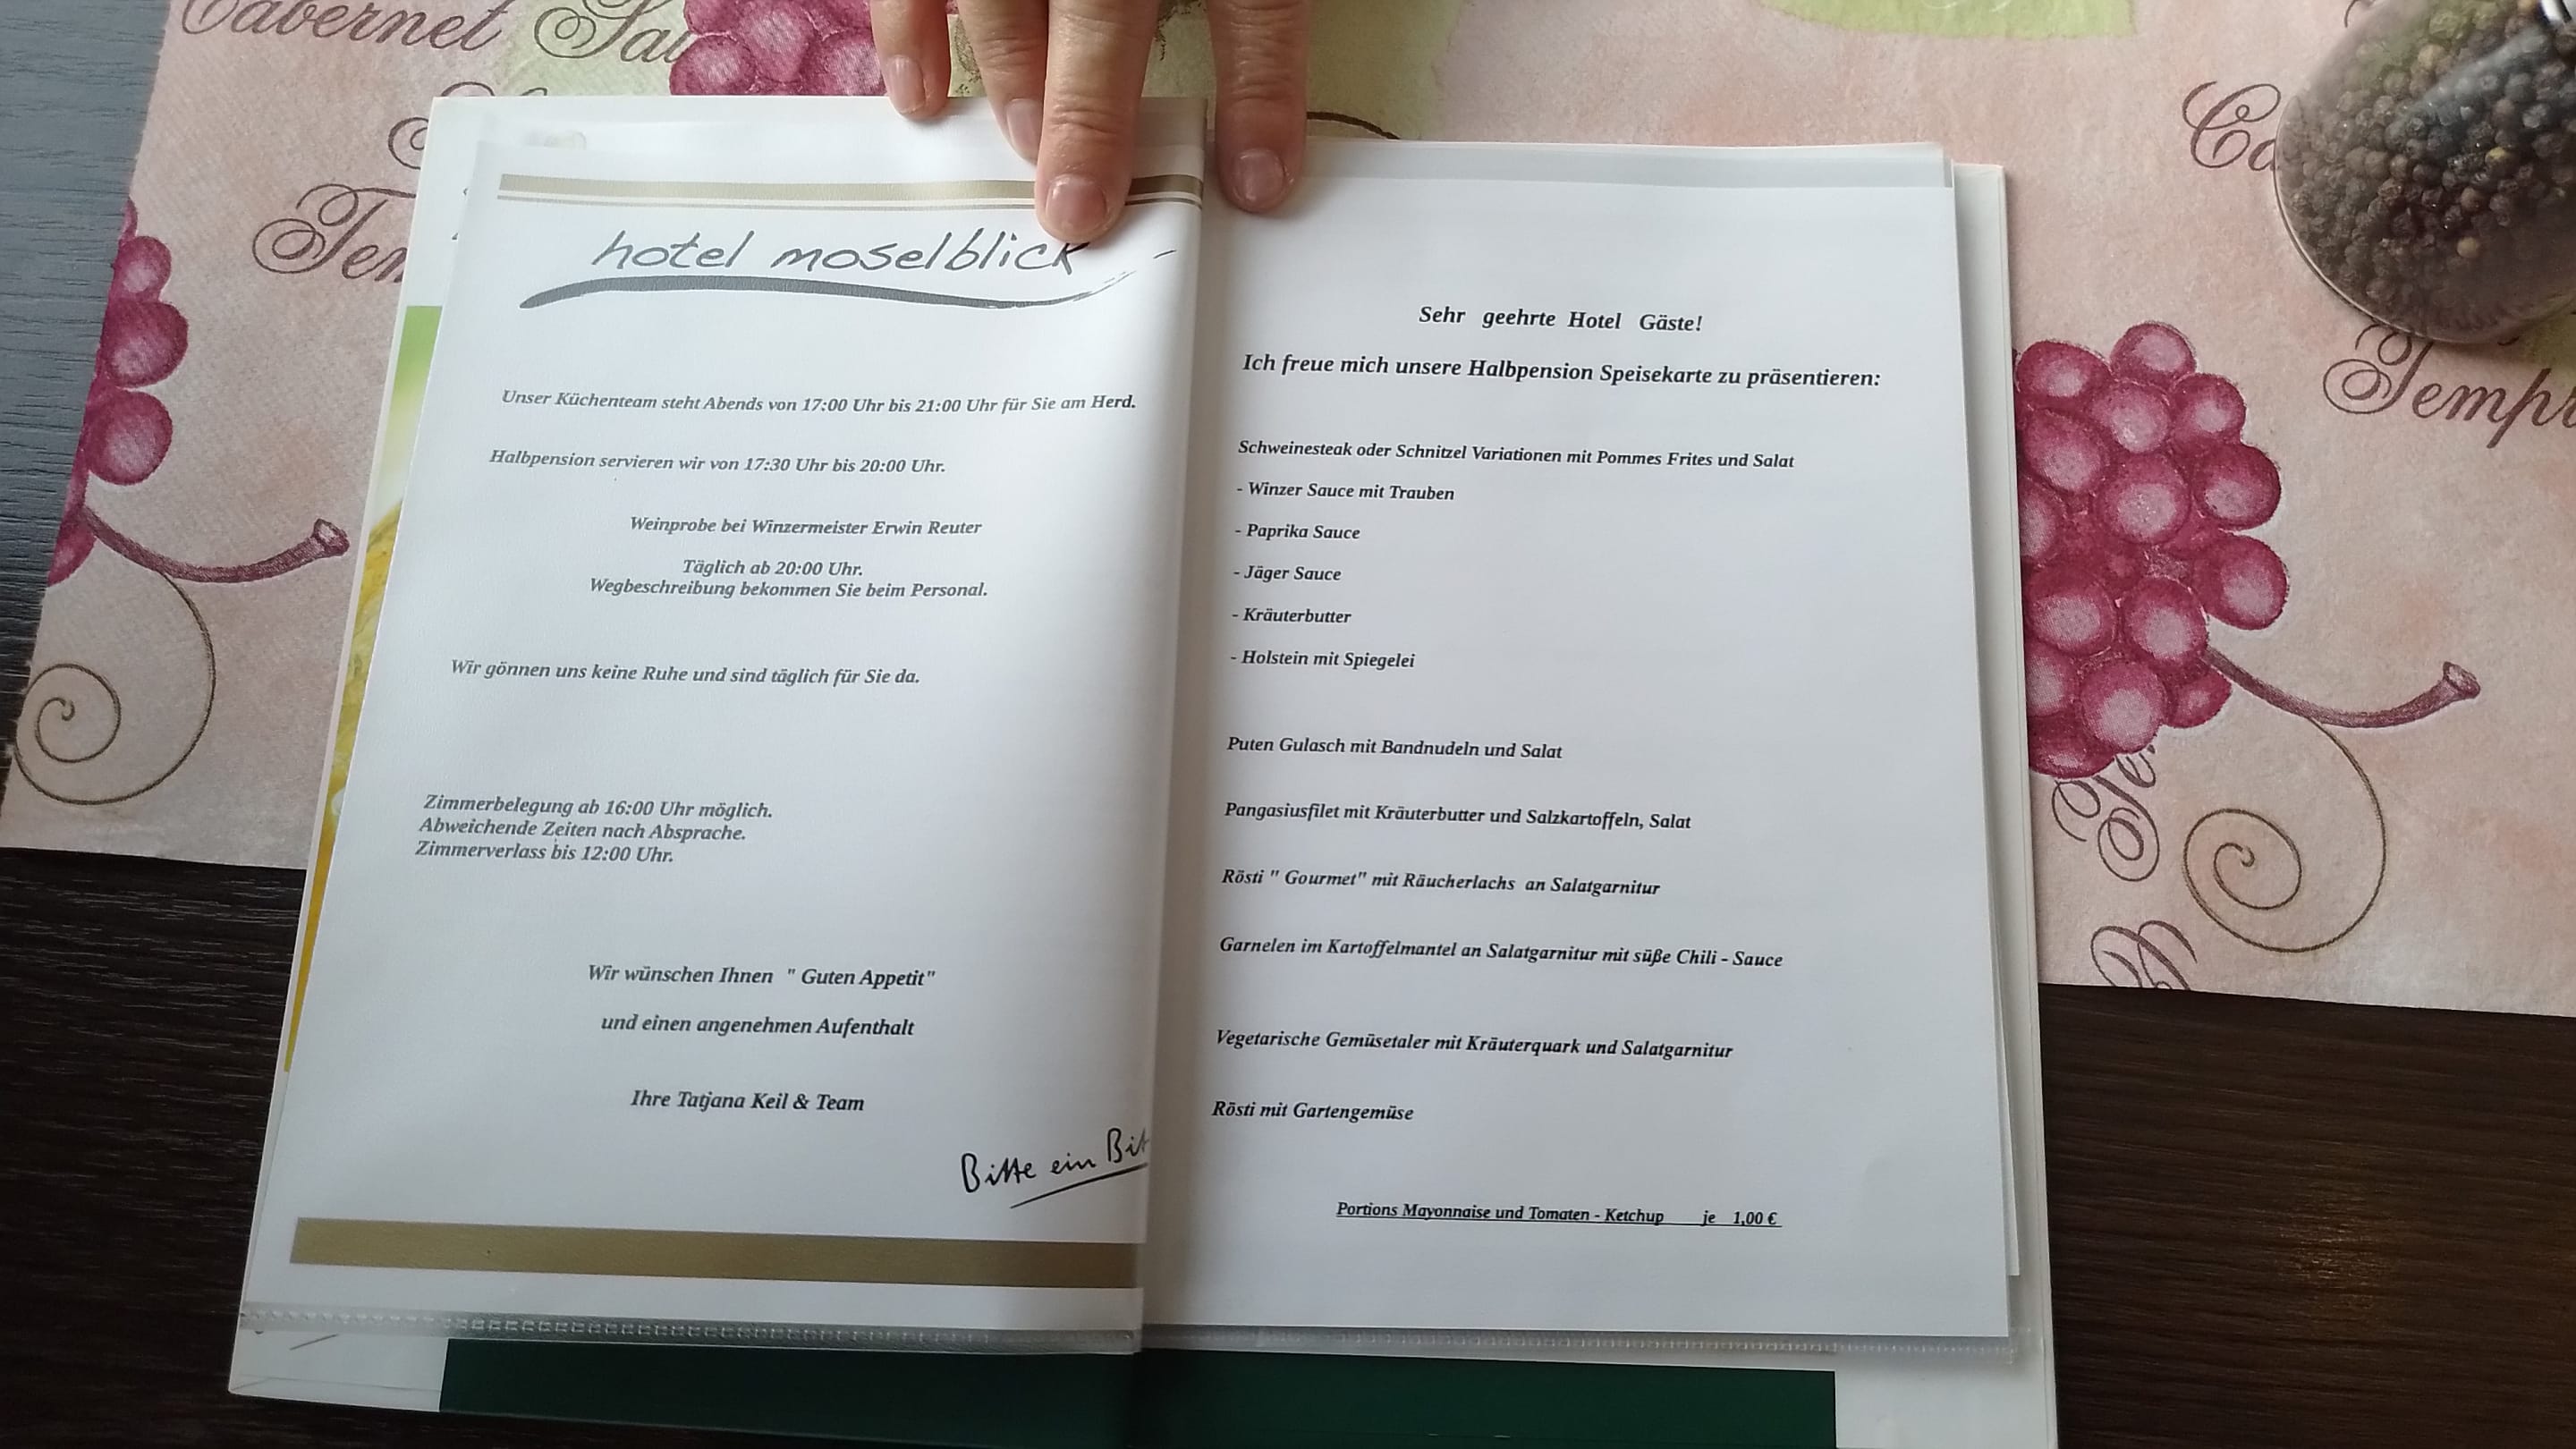 Cabernet Sau
Tem
hotel moselblick
Unser Küchenteam steht Abends von 17:00 Uhr bis 21:00 Uhr für Sie am Herd.
Halbpension servieren wir von 17:30 Uhr bis 20:00 Uhr.
Weinprobe bei Winzermeister Erwin Reuter
Täglich ab 20:00 Uhr.
Wegbeschreibung bekommen Sie beim Personal.
Wir gönnen uns keine Ruhe und sind täglich für Sie da.
Zimmerbelegung ab 16:00 Uhr möglich.
Abweichende Zeiten nach Absprache.
Zimmerverlass bis 12:00 Uhr.
Wir wünschen Ihnen " Guten Appetit"
und einen angenehmen Aufenthalt
Ihre Tatjana Keil & Team
Bitte ein Bit
Sehr geehrte Hotel Gäste!
Ich freue mich unsere Halbpension Speisekarte zu präsentieren:
Schweinesteak oder Schnitzel Variationen mit Pommes Frites und Salat
- Winzer Sauce mit Trauben
- Paprika Sauce
- Jäger Sauce
- Kräuterbutter
- Holstein mit Spiegelei
Puten Gulasch mit Bandnudeln und Salat
Pangasiusfilet mit Kräuterbutter und Salzkartoffeln, Salat
Rösti " Gourmet" mit Räucherlachs an Salatgarnitur
Garnelen im Kartoffelmantel an Salatgarnitur mit süße Chili - Sauce
Vegetarische Gemüsetaler mit Kräuterquark und Salatgarnitur
Rösti mit Gartengemüse
Portions Mayonnaise und Tomaten - Ketchup je 1,00 €
Ca
Tempr
Te